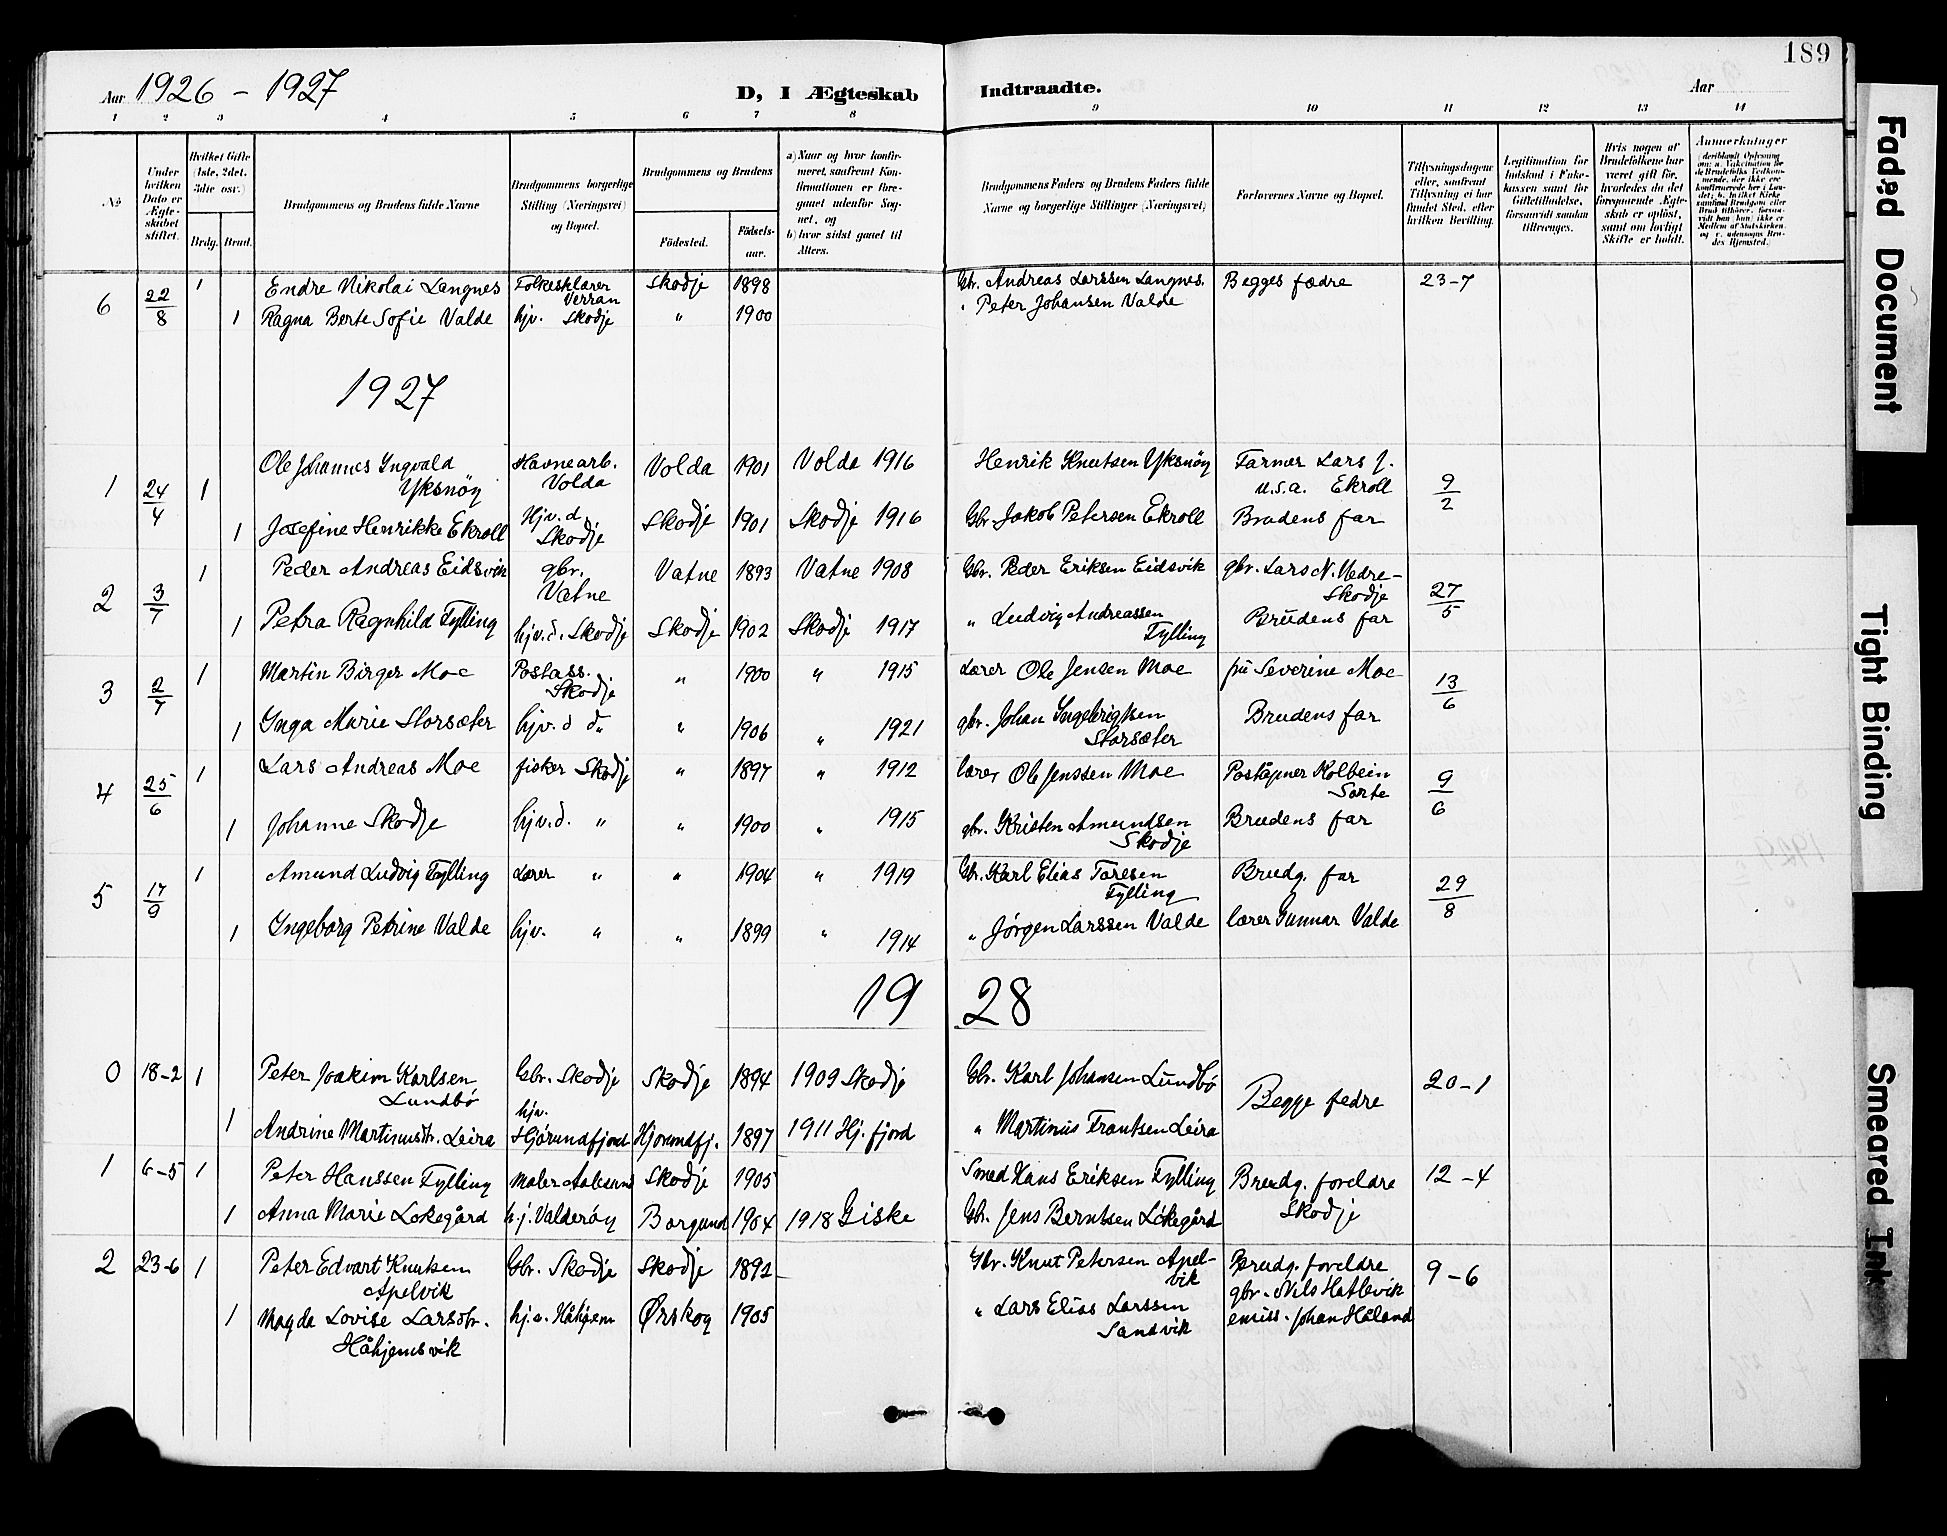 189
Aar 1926 - 1927 D, I Ægteskab Indtraadte. Aar
1 2 3 4 5 6 7 8 9 10 11 12 13 14
No
Under hvilken Dato er Ægteskabet stiftet.
Hvilket Gifte (1ste, 2det, 3die osv.)
Brdg. Brud.
Brudgommens og Brudens fulde Navne
Brudgommens borgerlige Stilling (Næringsvei) og Bopæl.
Brudgommens og Brudens
Födested. Födselsaar.
a) Naar og hvor konfirmeret, saafremt Konfirmationen er foregaaet udenfor Sognet, og
b) hvor sidst gaaet til Alters.
Brudgommens Faders og Brudens Faders fulde Navne og borgerlige Stillinger (Næringsvei)
Forlovernes Navne og Bopæl.
Tillysningsdagene eller, saafremt Tillysning ei har fundet Sted, efter hvilken Bevilling.
Legitimation for Indskud i Fakekassen samt for Giftetilladelse, forsaavidt saadan tiltrænges.
Hvis nogen af Brudefolkene har været gift før, hvorledes da det foregaaende Ægteskab er oplöst, samt om lovligt Skifte er holdt.
Anmerkninger
6 22/8 1 Endre Nikolai Langnes Folkesklærer Verran Skodje 1898 Gbr. Andreas Larssen Langnes. Begges fædre 23-7
1 Ragna Berte Sofie Valde hjv. Skodje " 1900 " Peter Johansen Valde
1927
1 24/4 1 Ole Johannes Ingvald Yksnöy Havnearb. Volda Volda 1901 Volda 1916 Henrik Knutsen Yksnöy Farmer Lars J. Ekroll U.S.A. 9/2
1 Josefine Henrikke Ekroll Hjv. d Skodje Skodje 1901 Skodje 1916 Gbr. Jakob Petersen Ekroll Brudens far
2 3/7 1 Peder Andreas Eidsvik gbr. Vatne Vatne 1893 Vatne 1908 Gbr. Peder Eriksen Eidsvik gbr. Lars N. Nedre-Skodje 27/5
1 Petra Ragnhild Fylling hjv. d. Skodje Skodje 1902 Skodje 1917 " Ludvig Andreassen Fylling Brudens far
3 2/7 1 Martin Birger Moe Postass. Skodje " 1900 " 1915 Lærer Ole Jensen Moe fru Severine Moe 13/6
1 Inga Marie Storsæter hjv. d d" " 1906 " 1921 gbr. Johan Ingebrigtsen Storsæter Brudens far
4 25/6 1 Lars Andreas Moe fisker Skodje " 1897 " 1912 lærer Ole Jenssen Moe Poståpner Kolbein Sorte 9/6
1 Johanne Skodje hjv. d. " " 1900 " 1915 gbr. Kristen Amundsen Skodje Brudens far
5 17/9 1 Amund Ludvig Fylling Lærer " " 1904 " 1919 Gbr. Karl Elias Toresen Fylling Brudg. far 29/8
1 Ingeborg Petrine Valde hjv. " " 1899 " 1914 " Jørgen Larssen Valde lærer Gunnar Valde
1928
0 18-2 1 Peter Joakim Karlsen Lundbö Gbr. Skodje Skodje 1894 1909 Skodje Gbr. Karl Johansen Lundbö Begge fedre 20-1
1 Andrine Martinusdtr. Leira hjv. Hjörundfjord Hjörundfj. 1897 1911 Hj. fjord " Martinus Frantsen Leira
1 6-5 1 Peter Hanssen Fylling Maler Aalesund Skodje 1905 Smed Hans Eriksen Fylling Brudg. foreldre Skodje 12-4
1 Anna Marie Lokegård h.j. Valderöy Borgund 1904 1918 Giske Gbr. Jens Berntsen Lökegård
2 23-6 1 Peter Edvart Knutsen Apelvik Gbr. Skodje Skodje 1892 Gbr. Knut Petersen Apelvik Brudg. foreldre gbr. Nils Hatlevik emiss. Johan Håland 9-6
1 Magda Lovise Larsdtr. Håhjemsvik hj.v. Håhjem Ørskog 1905 " Lars Elias Larssen Sandvik
Faded Document
Tight Binding
Smeared Ink